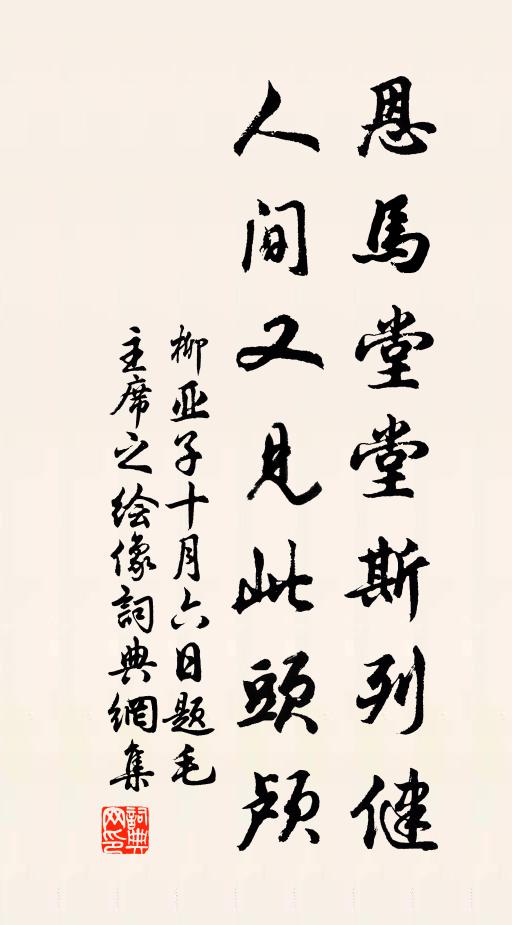 恩馬堂堂斯列健
人間又見此頭颅
柳亚子十月六日題毛
主席之绘像詞典網集
詞典网印